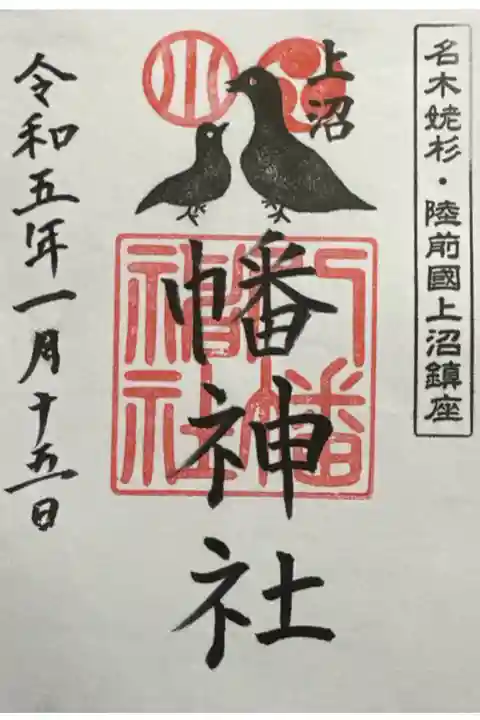 名木姥杉・陸前國上沼鎮座
上沼
幡神社
八幡
神社
令和五年一月十五日